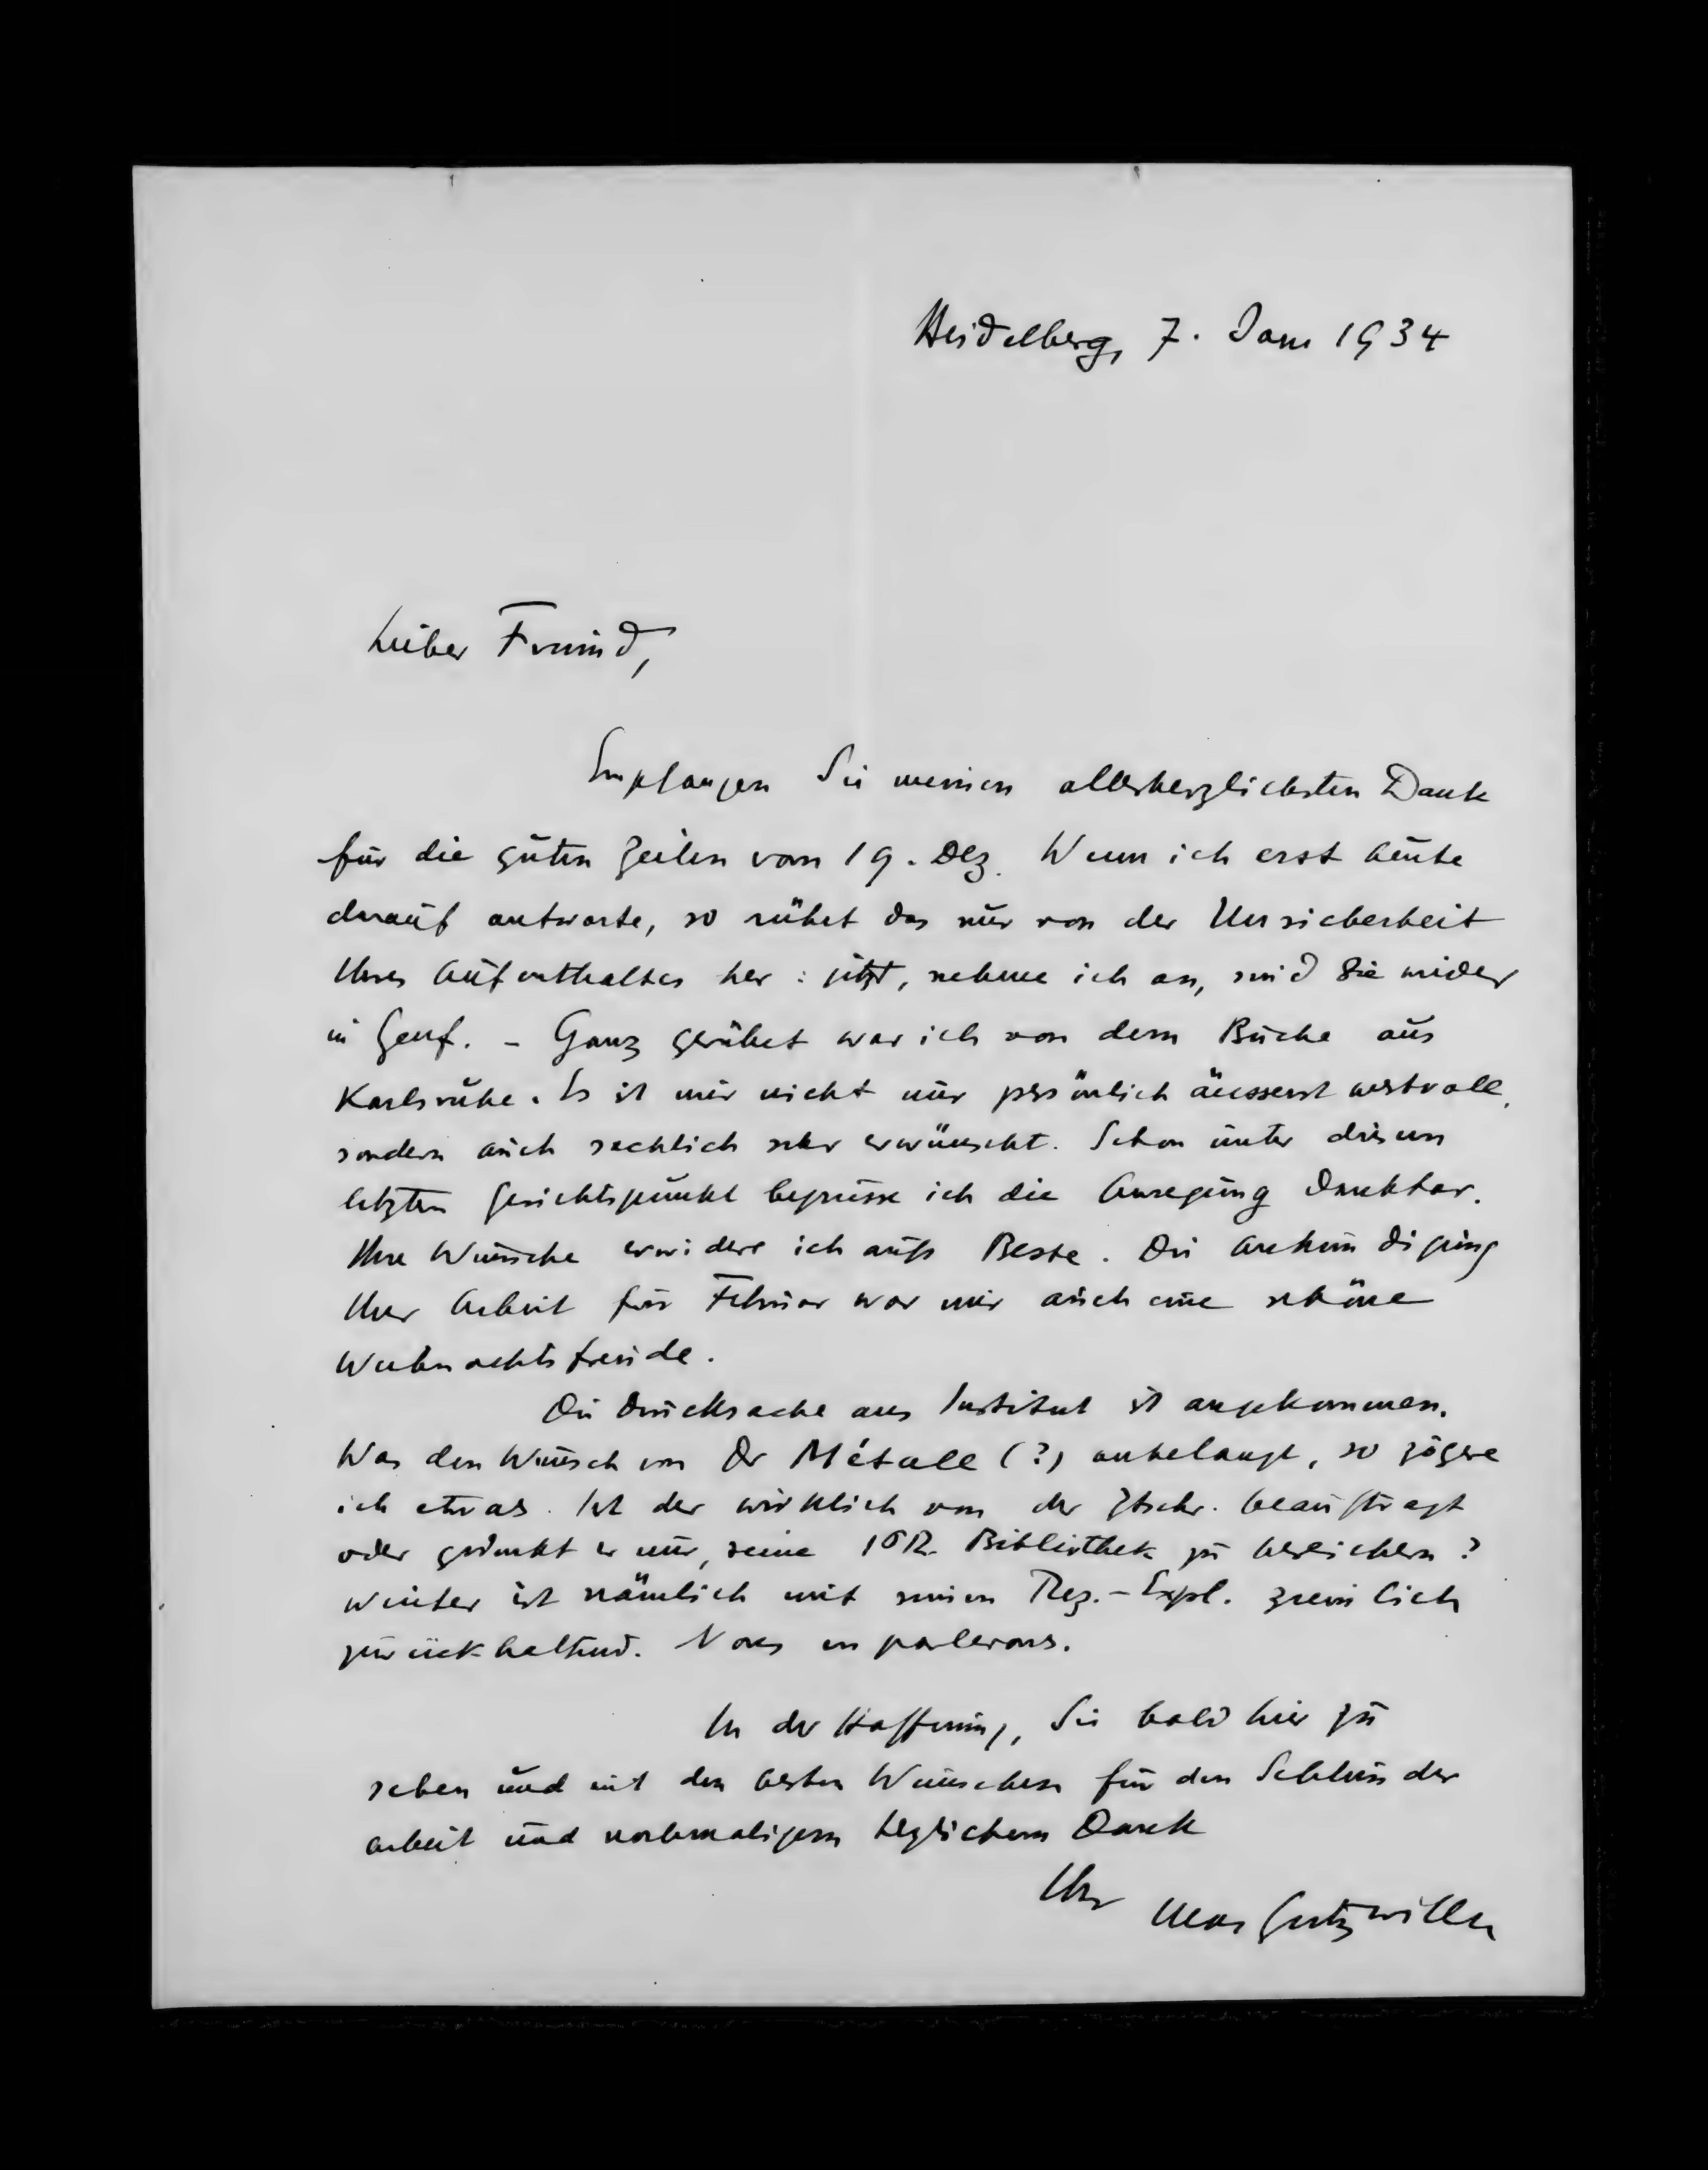 Heidelberg, 7. Jan 1934
Lieber Freund,
Empfangen Sie meinen allerherzlichsten Dank
für die guten Zeilen vom 19. Dez. Wenn ich erst heute
darauf antworte, so rührt das nur von der Unsicherheit
Ihres Aufenthaltes her : jetzt, nehme ich an, sind Sie wieder
in Genf. – Ganz gerührt war ich von dem Buche aus
Karlsruhe. Es ist mir nicht nur persönlich äusserst wertvoll,
sondern auch sachlich sehr erwünscht. Schon unter diesem
letzten Gesichtspunkt begrüsse ich die Anregung dankbar.
Ihre Wünsche erwidere ich aufs Beste. Die Ankündigung
Ihrer Arbeit für Februar war mir auch eine schöne
Weihnachtsfreude.
Die Drucksache ans Institut ist angekommen.
Was den Wunsch von Dr Métall (?) anbelangt, so zögere
ich etwas. Ist der wirklich von der Ztschr. beauftragt
oder gedenkt er nur, seine IPR Bibliothek zu bereichern ?
Winter ist nämlich mit seinen Rez.-Expl. ziemlich
zurückhaltend. Nous en parlerons.
In der Hoffnung, Sie bald hier zu
sehen und mit den besten Wünschen für den Schluss der
Arbeit und nochmaligem herzlichem Dank
Ihr Max Gutzwiller